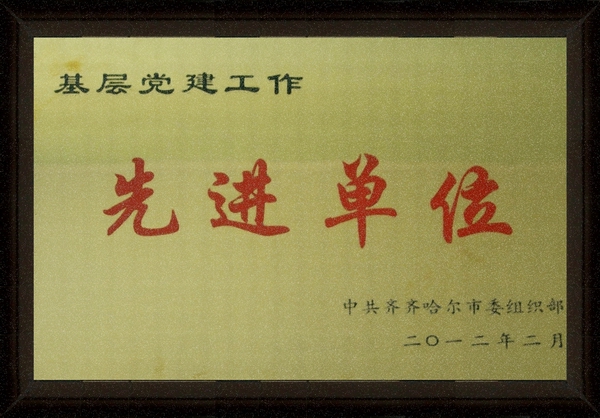 基层党建工作
先进单位
中共齐齐哈尔市委组织部
二〇一二年二月